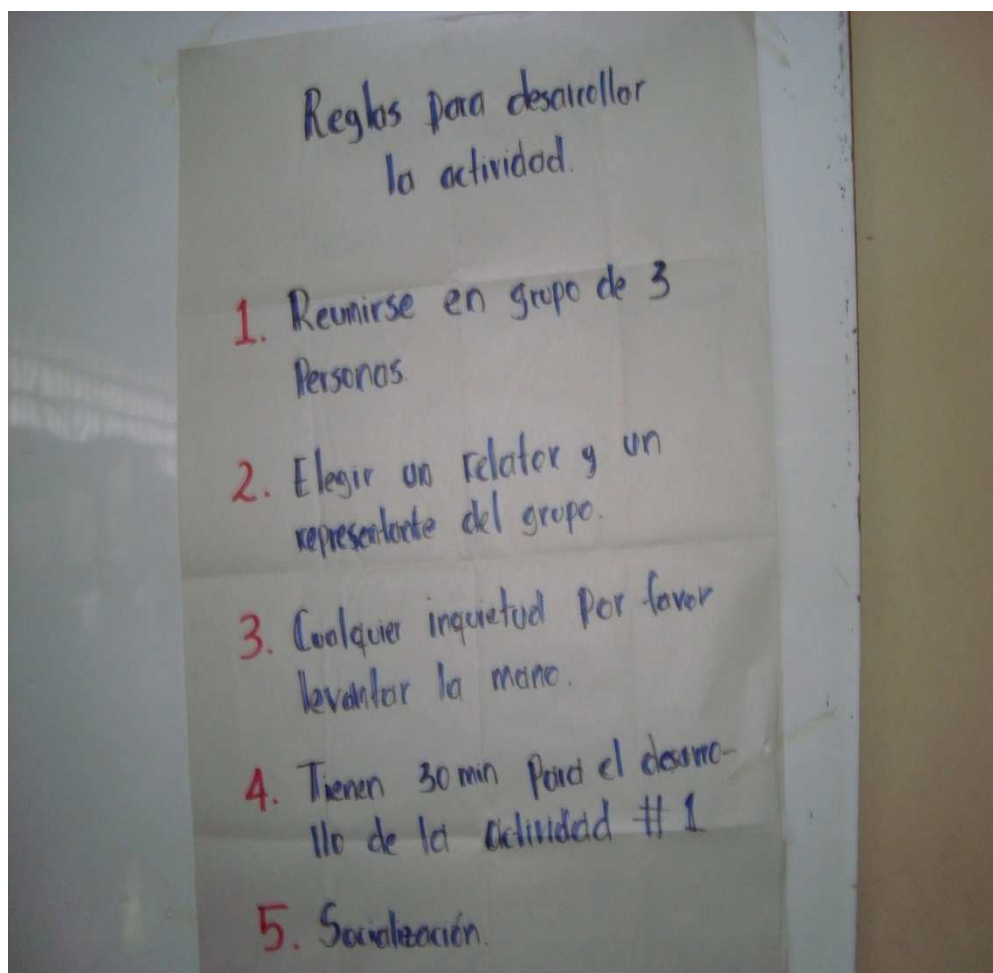 Reglas para desarrollar
la actividad.
1. Reunirse en grupo de 3
Personas.
2. Elegir un relator y un
representante del grupo.
3. Cualquier inquietud Por favor
levantar la mano.
4. Tienen 30 min Para el desarro-
llo de la actividad # 1
5. Socialización.